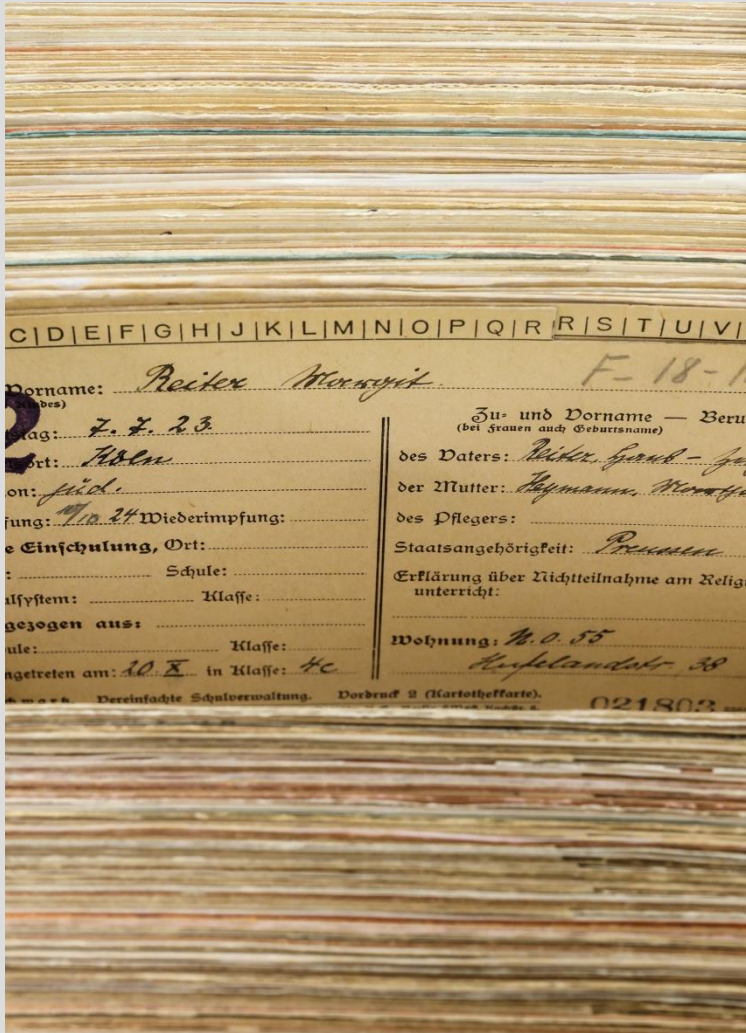 C|D|E|F|G|H|J|K|L|M|N|O|P|Q|R R|S|T|U|V|
Vorname: Reiter Margit
F-18-1
tag: 7. 7. 23.
ort: Köln
on: jüd.
fung: 24 Wiederimpfung:
e Einschulung, Ort:
: Schule:
alsystem: Klasse:
gezogen aus:
ule: Klasse:
ngetreten am: 20 X in Klasse: 4c
Zu- und Vorname — Beru
(bei Frauen auch Geburtsname)
des Vaters: Reiter, Hans-
der Mutter: Heymann,
des Pflegers:
Staatsangehörigkeit: Preussen
Erklärung über Nichtteilnahme am Relig
unterricht:
Wohnung: N.O. 55
Hufelandstr. 38
Vereinfachte Schulverwaltung. Vordruck 2 (Kartothekkarte).
021803